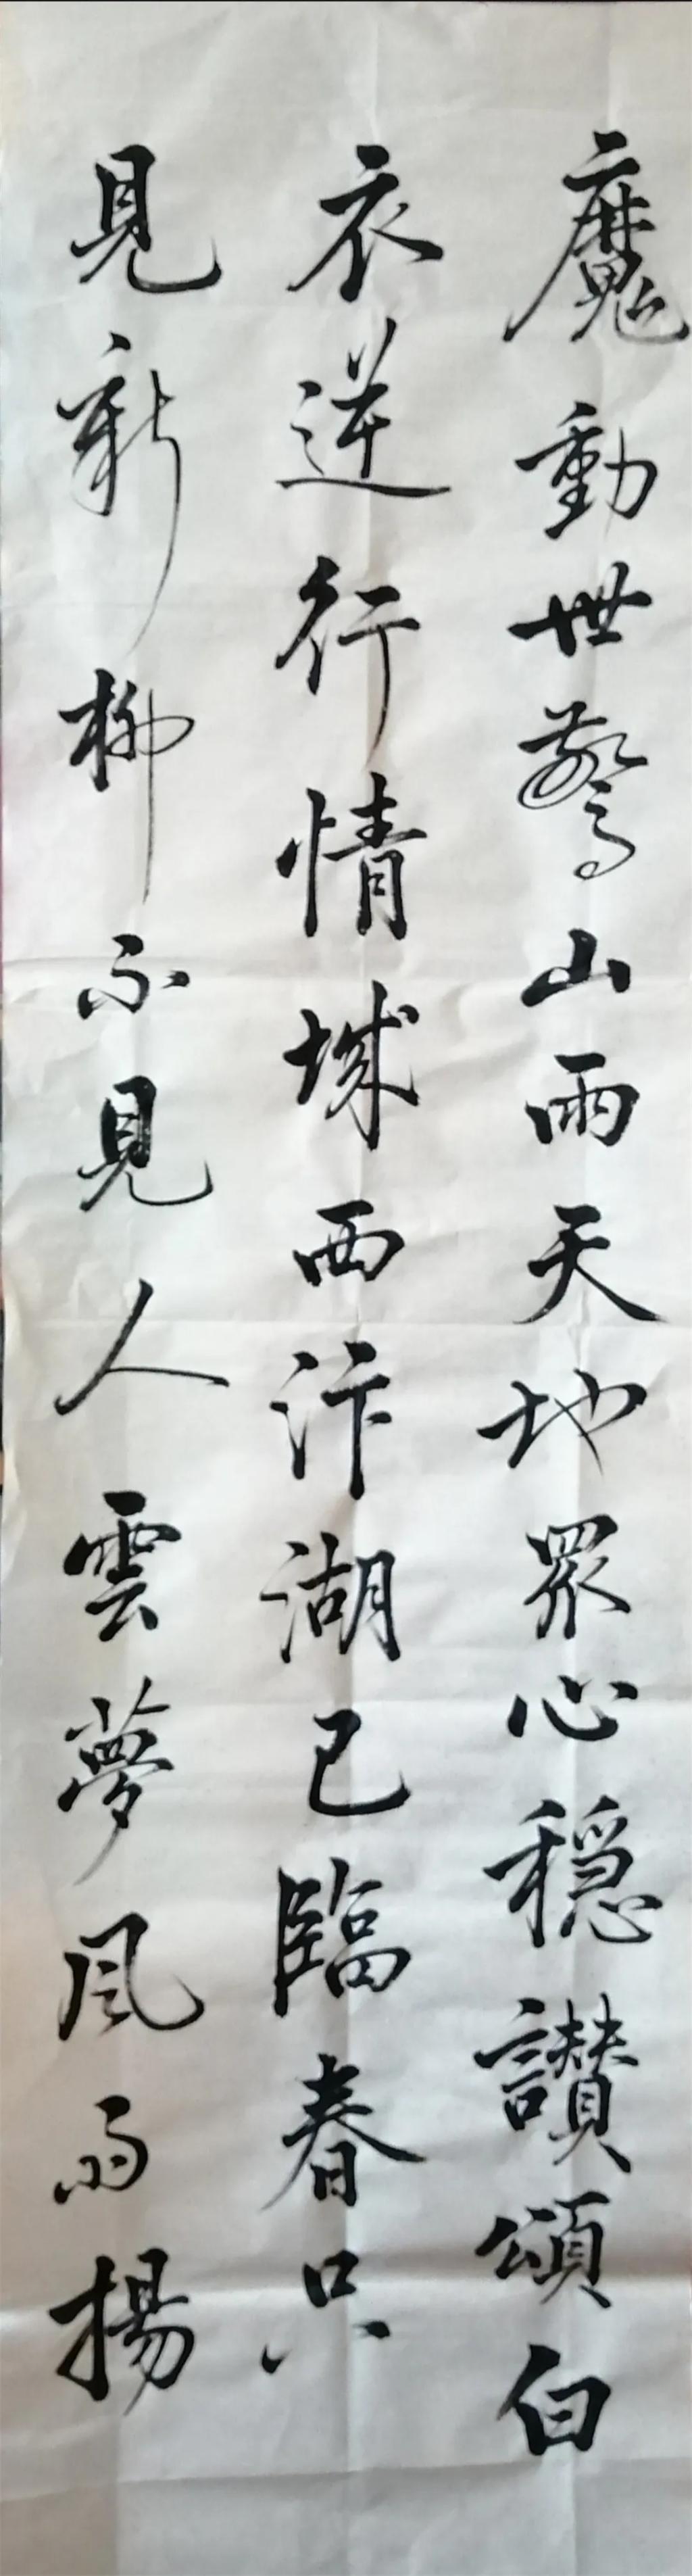 魔動世驚山雨天地眾心穩讚頌白
衣逆行情城西汴湖已臨春只
見新柳不見人雲夢風雨揚